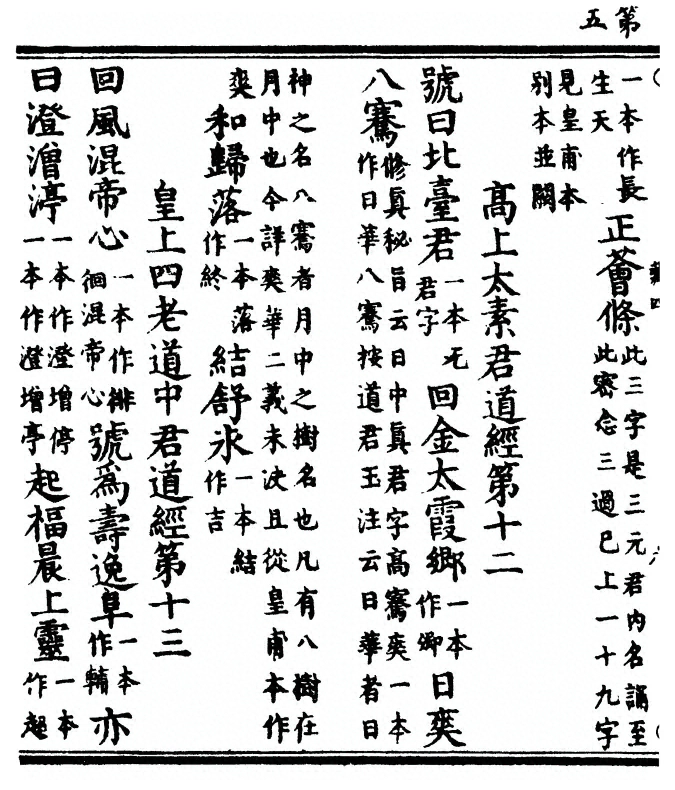 第五
一本作長生天正薈條此三字是三元君内名誦至此密念三過已上一十九字
見皇甫本别本並闕
高上太素君道經第十二
號曰北臺君一本无君字回金太霞鄉一本作卿日奕
八騫修真秘旨云日中真君字高騫奕一本作日華八騫按道君玉注云日華者日
神之名八騫者月中之樹名也凡有八樹在月中也今詳奕華二義未決且從皇甫本作
奕和歸落一本落作終結舒氷一本結作吉
皇上四老道中君道經第十三
回風混帝心一本作徘徊混帝心號爲壽逸阜一本作輔亦
曰澄渟一本作澄增停一本作澄增亭起福晨上靈一本作超